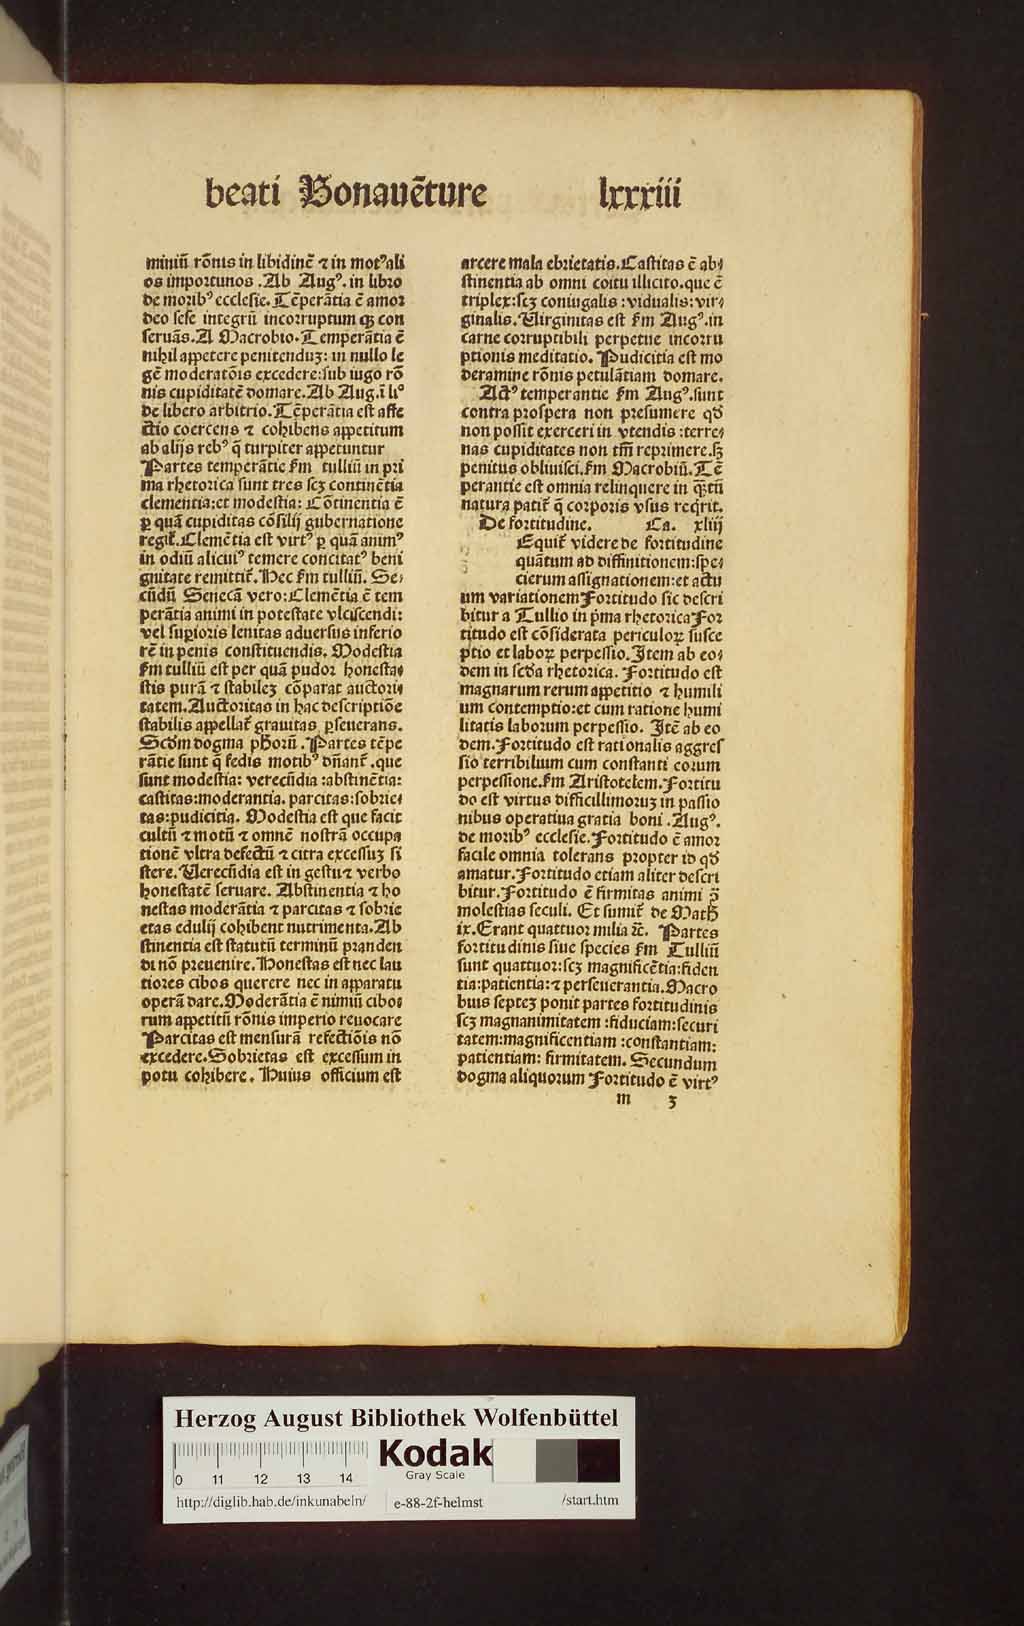 beati Bonauēture lxxxiii
miniū rōnis in libidinē ⁊ in motꝰ ali
os importunos . Ab Augꝰ. in libro
de moribꝰ ecclesie. Tēperātia ē amor
deo sese integrū incorruptum qꝫ con
seruās. A Macrobio. Temperātia ē
nihil appetere penitenduꝫ: in nullo le
gē moderatōis excedere: sub iugo rō
nis cupiditatē domare. Ab Aug. ī li°
de libero arbitrio. Tēperātia est affe
ctio coercens ⁊ cohibens appetitum
ab alijs rebꝰ q̄ turpiter appetuntur
Partes temperātie ẜm tulliū in pri
ma rhetorica sunt tres scꝫ continētia
clementia: et modestia: Cōtinentia ē
ꝑ quā cupiditas cōsilij gubernatione
regit̄. Clemētia est virtꝰ ꝑ quā animꝰ
in odiū alicuiꝰ temere concitatꝰ beni
gnitate remittit̄. Hec ẜm tulliū. Se⸗
cūdū Senecā vero: Clemētia ē tem
perātia animi in potestate vlciscendi:
vel suꝑioris lenitas aduersus inferio
rē in penis constituendis. Modestia
ẜm tulliū est per quā pudor honesta⸗
stis purā ⁊ stabileꝫ cōparat auctori⸗
tatem. Auctoritas in hac descriptiōe
stabilis appellat̄ grauitas ꝑseuerans.
Scd̄m dogma ph̄orū . Partes tēpe
rātie sunt q̄ sedis motibꝰ dn̄ant̄ . que
sunt modestia: verecūdia : abstinētia:
castitas: moderantia. parcitas: sobrie⸗
tas: pudicitia. Modestia est que facit
cultū ⁊ motū ⁊ omnē nostrā occupa
tionē vltra defectū ⁊ citra excessuꝫ si
stere. Verecūdia est in gestu ⁊ verbo
honestatē seruare. Abstinentia ⁊ ho
nestas moderātia ⁊ parcitas ⁊ sobrie
etas edulij cohibent nutrimenta. Ab
stinentia est statutū terminū pranden
di nō preuenire. Honestas est nec lau
tiores cibos querere nec in apparatu
operā dare. Moderātia ē nimiū cibo⸗
rum appetitū rōnis imperio reuocare
Parcitas est mensurā refectiōis nō
excedere. Sobrietas est excessum in
potu cohibere. Huius officium est
arcere mala ebrietatis. Castitas ē ab⸗
stinentia ab omni coitu illicito. que ē
triplex: scꝫ coniugalis : vidualis: vir⸗
ginalis. Virginitas est ẜm Augꝰ. in
carne corruptibili perpetue incorru
ptionis meditatio. Pudicitia est mo
deramine rōnis petulātiam domare.
Actꝰ temperantie ẜm Augꝰ. sunt
contra prospera non presumere qđ
non possit exerceri in vtendis : terre⸗
nas cupiditates non tm̄ reprimere. sꝫ
penitus obliuisci. ẜm Macrobiū. Tē
perantie est omnia relinquere in qꝫtū
natura patit̄ q̄ corporis vsus reqrit.
De fortitudine. Ca. xliij
Equit̄ videre de fortitudine
quātum ad diffinitionem: spe⸗
cierum assignationem: et actu
um variationem Fortitudo sic descri
bitur a Tullio in pͥma rhetorica For
titudo est cōsiderata periculoꝝ susce
ptio et laboꝝ perpessio. Item ab eo⸗
dem in scđa rhetorica. Fortitudo est
magnarum rerum appetitio ⁊ humili
um contemptio: et cum ratione humi
litatis laborum perpessio. Itē ab eo
dem. Fortitudo est rationalis aggres
sio terribilium cum constanti eorum
perpessione. ẜm Aristotelem. Fortitu
do est virtus difficillimoruꝫ in passio
nibus operatiua gratia boni . Augꝰ.
de moribꝰ ecclesie. Fortitudo ē amor
facile omnia tolerans propter id qđ
amatur. Fortitudo etiam aliter descri
bitur. Fortitudo ē firmitas animi ꝯ̄
molestias seculi. Et sumit̄ de Math̄
ix. Erant quattuor milia ⁊c̄. Partes
fortitudinis siue species ẜm Tulliū
sunt quattuor: scꝫ magnificētia: fiden
tia: patientia: ⁊ perseuerantia. Macro
bius septeꝫ ponit partes fortitudinis
scꝫ magnanimitatem : fiduciam: securi
tatem: magnificentiam : constantiam:
patientiam: firmitatem. Secundum
dogma aliquorum Fortitudo ē virtꝰ
m 3
Herzog August Bibliothek Wolfenbüttel
0 11 12 13 14
Kodak
Gray Scale
http://diglib.hab.de/inkunabeln/ e-88-2f-helmst /start.htm